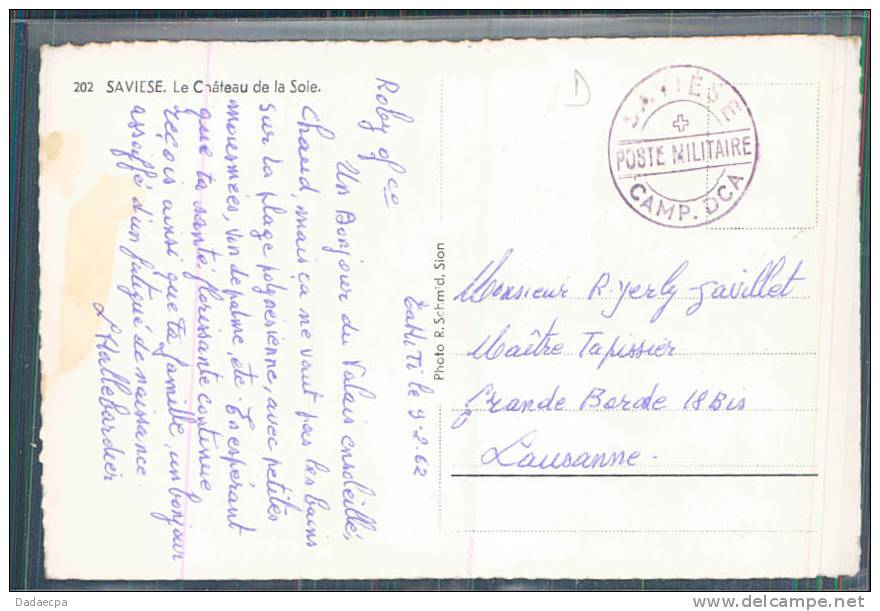 202 SAVIESE. Le Château de la Soie.
SAVIÈSE
POSTE MILITAIRE
CAMP. DCA
D
Tahiti le 9.2.62
Roby
Un Bonjour du Valais ensoleillé,
chaud, mais ça ne vaut pas les bains
sur la plage polynésienne, avec petites
mousmées, vin de palme, etc. En espérant
que ta santé florissante continue,
reçois ainsi que ta famille, un bonjour
assoiffé d'un fatigué de naissance.
L'Hallebardier
Photo R. Schmid, Sion
Monsieur R. Yerly-Gavillet
Maître Tapissier
Grande Borde 18 Bis
Lausanne.
Dadaecpa
delcampe.net